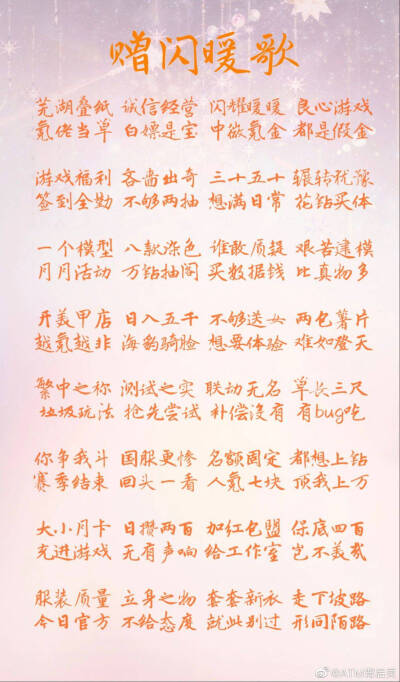 赠闪暖歌
芜湖叠纸 诚信经营 闪耀暖暖 良心游戏
氪佬当草 白嫖是宝 中欧氪金 都是假金
游戏福利 吝啬出奇 三十五十 辗转犹豫
签到全勤 不够两抽 想满日常 花钻买体
一个模型 八款染色 谁敢质疑 艰苦建模
月月活动 万钻抽阁 买数据钱 比真物多
开美甲店 日入五千 不够送女 两包薯片
越氪越非 海豹骑脸 想要体验 难如登天
繁中之称 测试之实 联动无名 草长三尺
垃圾玩法 抢先尝试 补偿没有 有bug吃
你争我斗 国服更惨 名额固定 都想上钻
赛季结束 回头一看 人氪七块 顶我上万
大小月卡 日攒两百 加红包盟 保底四百
充进游戏 无有声响 给工作室 岂不美哉
服装质量 立身之物 套套新衣 走下坡路
今日官方 不给态度 就此别过 形同陌路